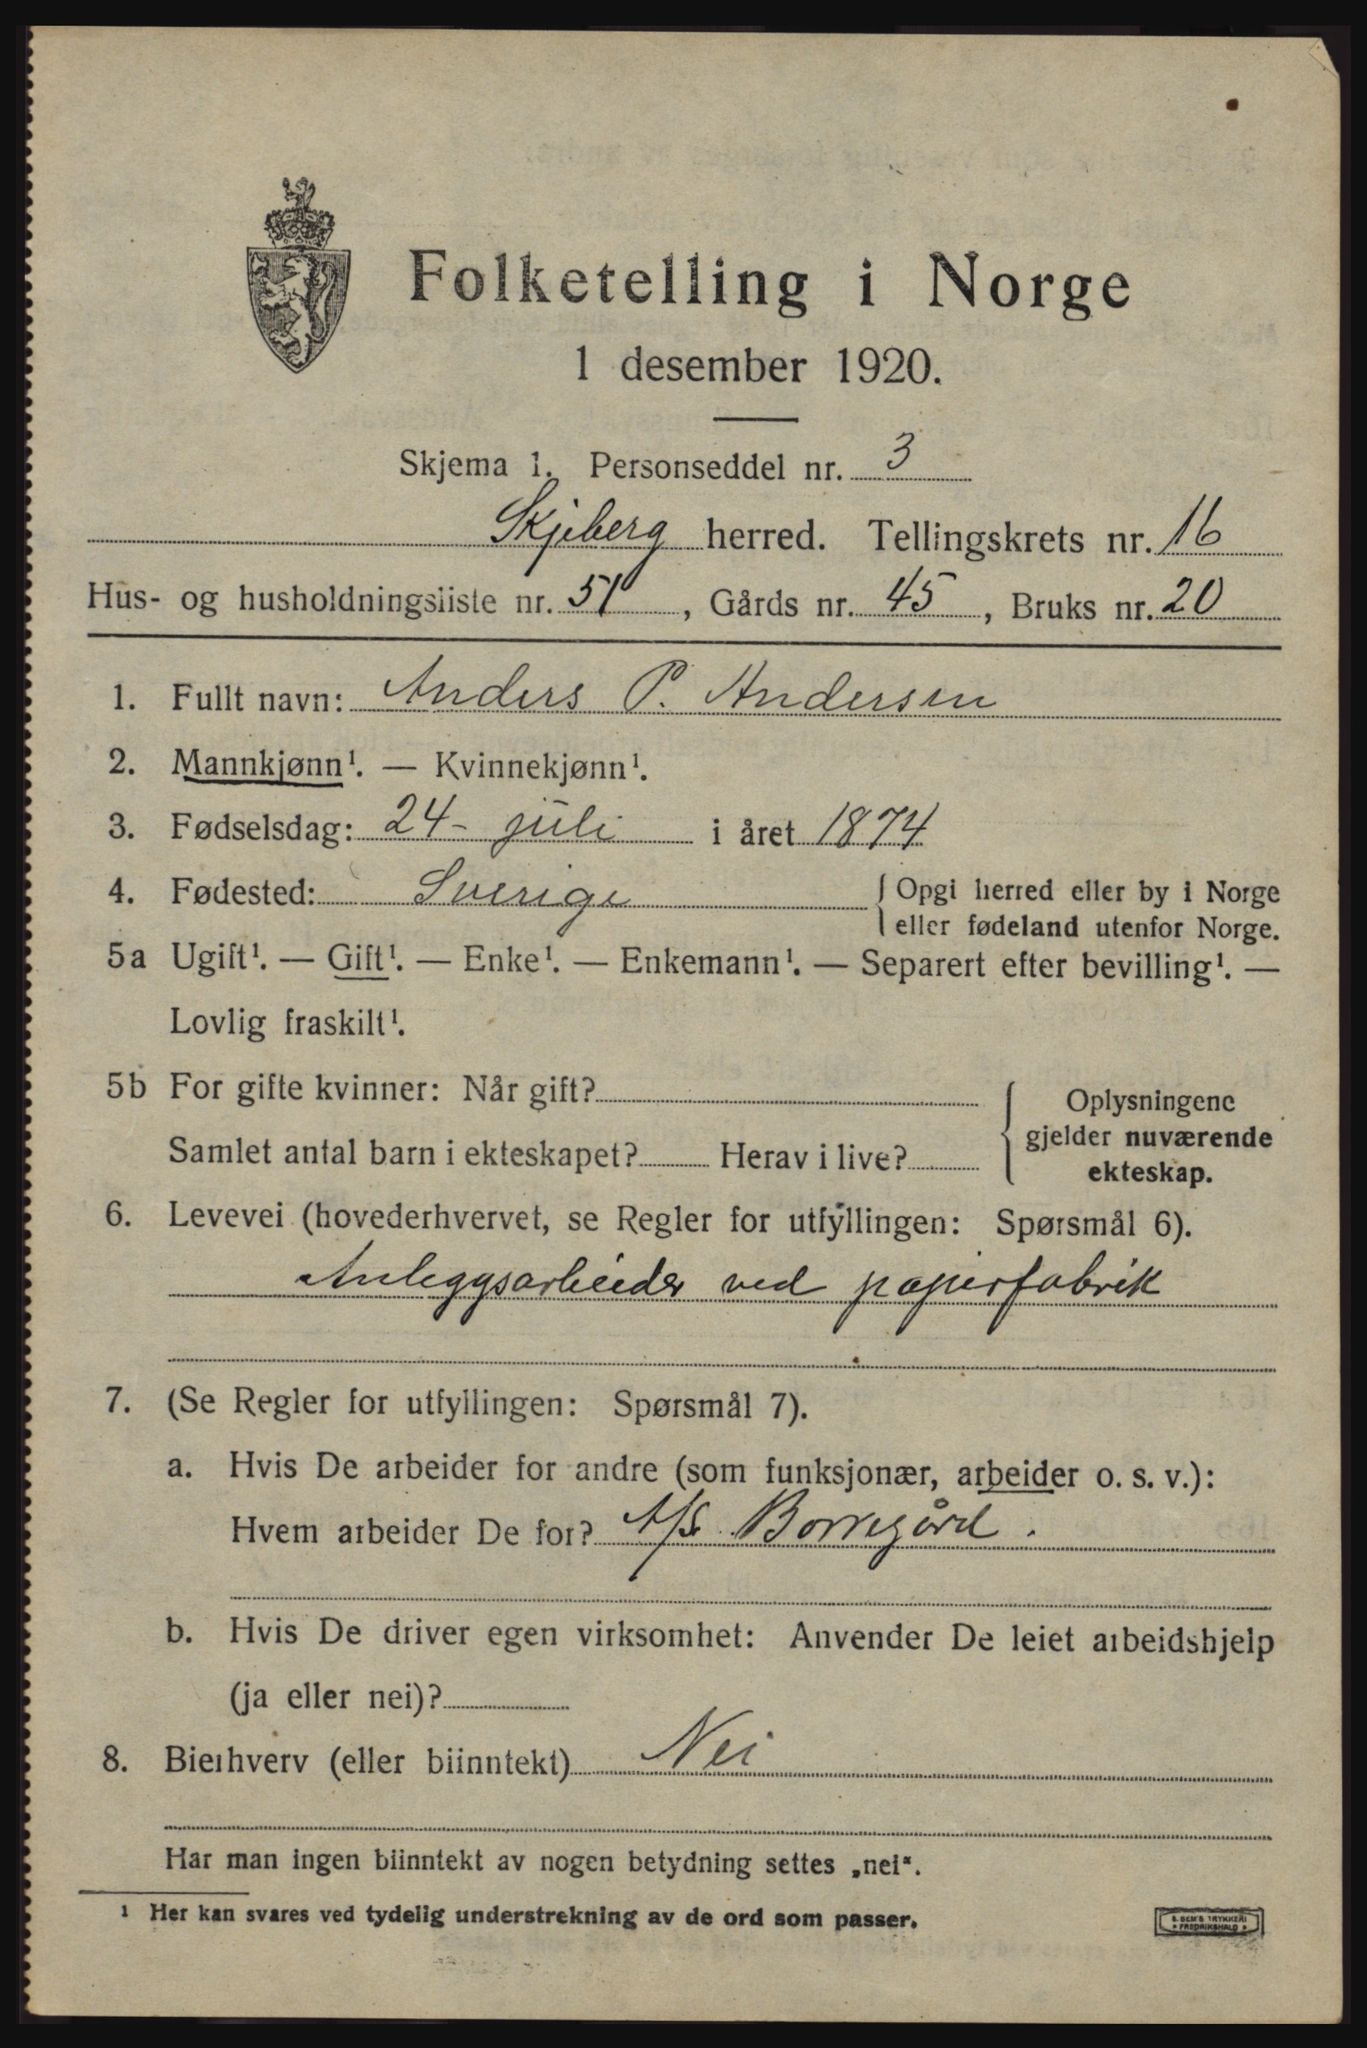 Folketelling i Norge
1 desember 1920.
Skjema 1. Personseddel nr. 3
Skjeberg herred. Tellingskrets nr. 16
Hus- og husholdningsliste nr. 51, Gårds nr. 45, Bruks nr. 20
1. Fullt navn: Anders P. Andersen
2. Mannkjønn¹. — Kvinnekjønn¹.
3. Fødselsdag: 24- juli i året 1874
4. Fødested: Sverige { Opgi herred eller by i Norge
eller fødeland utenfor Norge.
5a Ugift¹. — Gift¹. — Enke¹. — Enkemann¹. — Separert efter bevilling¹. —
Lovlig fraskilt¹.
5b For gifte kvinner: Når gift?
Samlet antal barn i ekteskapet? Herav i live?
Oplysningene
gjelder nuværende
ekteskap.
6. Levevei (hovederhvervet, se Regler for utfyllingen: Spørsmål 6).
Anleggsarbeider ved papirfabrik
7. (Se Regler for utfyllingen: Spørsmål 7).
a. Hvis De arbeider for andre (som funksjonær, arbeider o. s. v.):
Hvem arbeider De for? A/S. Borregård.
b. Hvis De driver egen virksomhet: Anvender De leiet arbeidshjelp
(ja eller nei)?
8. Bierhverv (eller biinntekt) Nei
Har man ingen biinntekt av nogen betydning settes „nei".
¹ Her kan svares ved tydelig understrekning av de ord som passer.
E. SEM'S TRYKKERI
• FREDRIKSHALD •